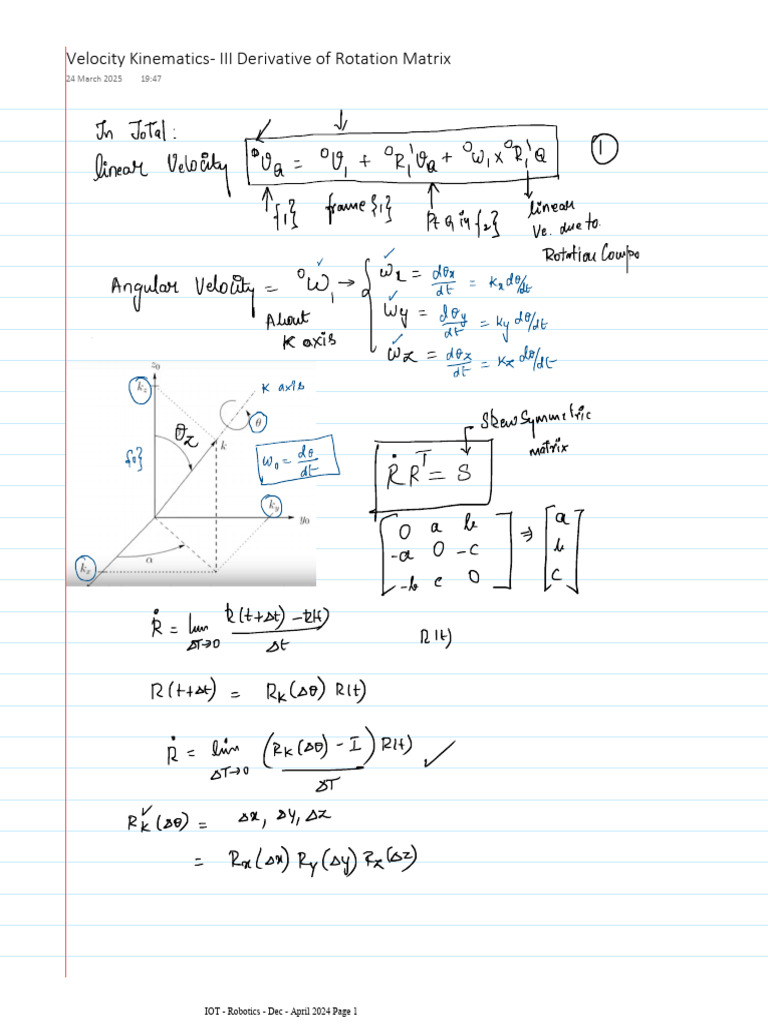 Velocity Kinematics- III Derivative of Rotation Matrix
24 March 2025 19:47
In Total:
linear Velocity ⁰V_Q = ⁰V₁ + ⁰R₁ ¹V_Q + ⁰ω₁ × ⁰R₁ ¹Q ①
{1} frame {1} Pt Q in {2} linear
Ve. due to
Rotation Compo
Angular Velocity = ⁰W₁ → { ωx = dθx/dt = kx dθ/dt
About ωy = dθy/dt = ky dθ/dt
K axis ωz = dθz/dt = kz dθ/dt
z₀
kz K axis
θ
θz k
{0} ω₀ = dθ/dt
ky y₀
α
kx
Skew Symmetric
matrix
Ṙ Rᵀ = S
[ 0 a b ⇒ [ a
-a 0 -c b
-b c 0 ] c ]
Ṙ = lim ΔT→0 R(t+Δt) - R(t) / Δt R(t)
R(t+Δt) = R_K(Δθ) R(t)
Ṙ = lim ΔT→0 (R_K(Δθ) - I) R(t) / ΔT ✓
R_K(Δθ) = Δx, Δy, Δz
= Rx(Δx) Ry(Δy) Rz(Δz)
IOT - Robotics - Dec - April 2024 Page 1